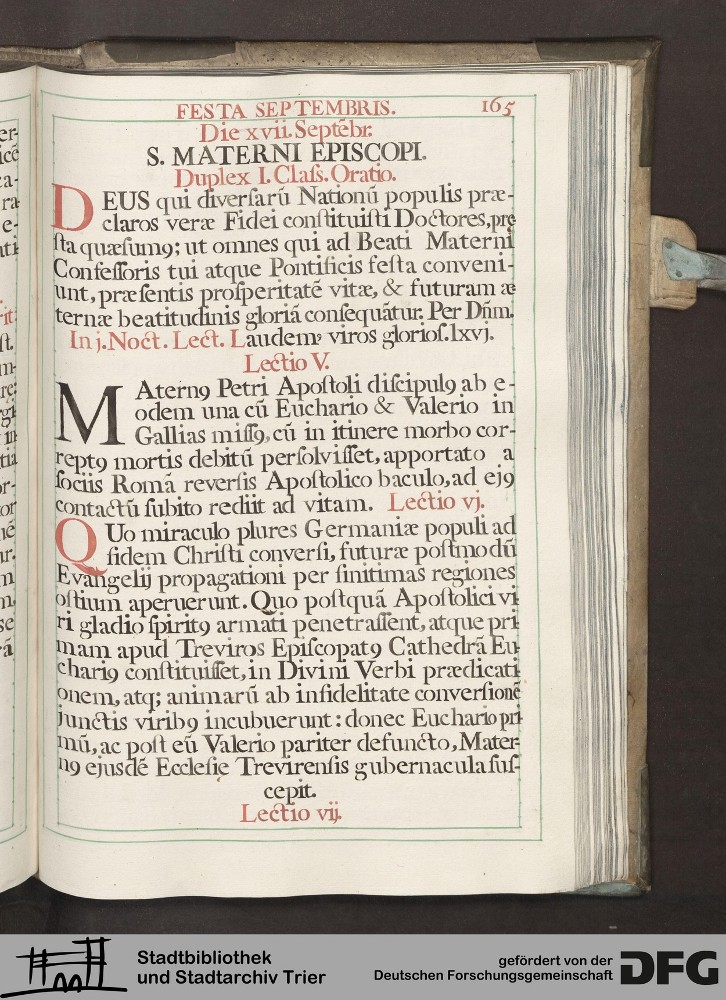 FESTA SEPTEMBRIS. 165
Die xvii. Septẽbr.
S. MATERNI EPISCOPI.
Duplex I. Claſs. Oratio.
DEUS qui diverſarũ Nationũ populis præ-
claros veræ Fidei conſtituiſti Doctores, prę
ſta quæſumꝰ; ut omnes qui ad Beati Materni
Confeſſoris tui atque Pontificis feſta conveni-
unt, præſentis proſperitatẽ vitæ, & futuram æ
ternæ beatitudinis gloriã conſequãtur. Per Dñm.
In j. Noct. Lect. Laudemꝰ viros glorioſ. lxvj.
Lectio V.
MAternꝰ Petri Apoſtoli diſcipulꝰ ab e-
odem una cũ Euchario & Valerio in
Gallias miſſꝰ, cũ in itinere morbo cor-
reptꝰ mortis debitũ perſolviſſet, apportato a
ſociis Romã reverſis Apoſtolico baculo, ad ejꝰ
contactũ ſubito rediit ad vitam. Lectio vj.
QUo miraculo plures Germaniæ populi ad
fidem Chriſti converſi, futuræ poſtmodũ
Evangelij propagationi per finitimas regiones
oſtium aperuerunt. Quo poſtquã Apoſtolici vi
ri gladio ſpiritꝰ armati penetraſſent, atque pri
mam apud Treviros Epiſcopatꝰ Cathedrã Eu
chariꝰ conſtituiſſet, in Divini Verbi prædicati
onem, atq; animarũ ab infidelitate converſionẽ
junctis viribꝰ incubuerunt: donec Euchario pri
mũ, ac poſt eũ Valerio pariter defuncto, Mater-
nꝰ ejusdẽ Eccleſię Trevirenſis gubernacula ſuſ-
cepit.
Lectio vij.
Stadtbibliothek
und Stadtarchiv Trier
gefördert von der
Deutschen Forschungsgemeinschaft
DFG